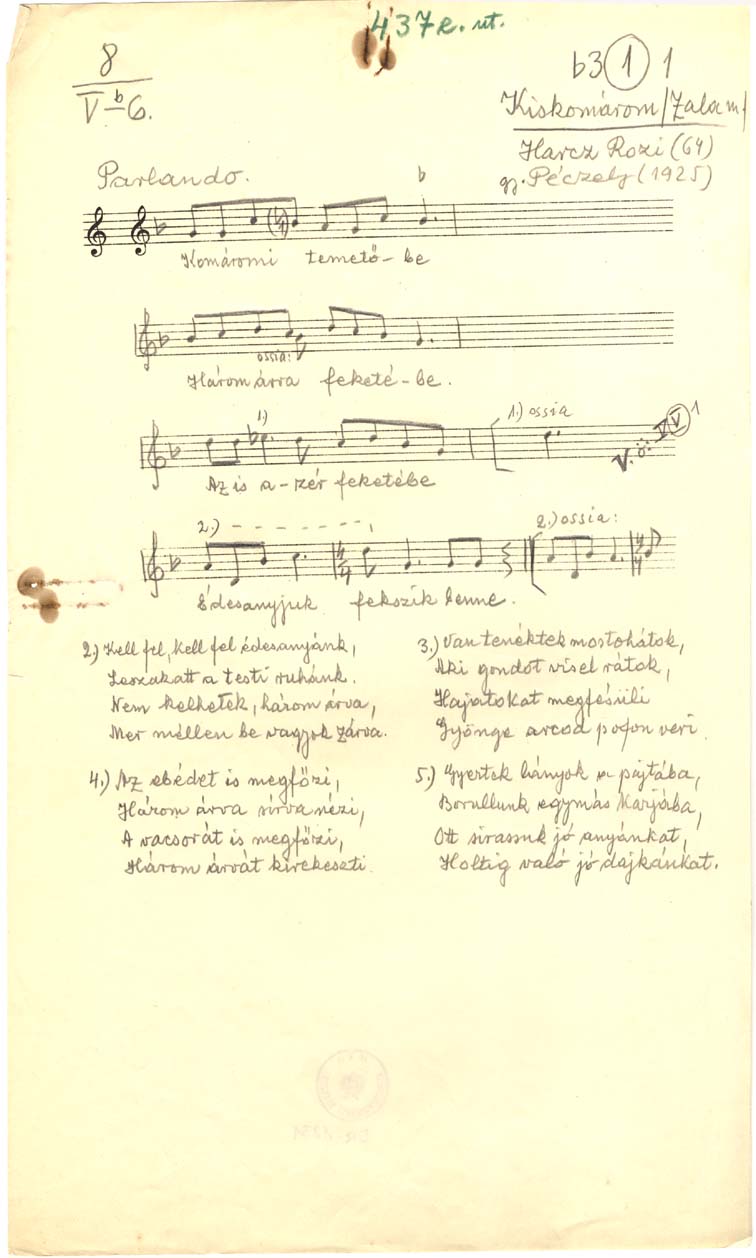 437e. ut.
8
V-b-6.
b3 1 1
Kiskomárom/Zala m/
Harcz Rozi (64)
gy. Péczely (1925)
Parlando.
b
Komáromi temető-be
ossia:
Három árva feketé-be.
1.)
1.) ossia
V. ö. V V 1
Az is a-zér feketébe
2.)
2.) ossia:
Édesanyjuk fekszik benne.
2.) Kell fel, kell fel édesanyánk,
Leszakatt a testi ruhánk.
Nem kelhetek, három árva,
Mer méllen be vagyok zárva.
3.) Van tenéktek mostohátok,
Aki gondot visel rátok,
Hajatokat megfésüli
Gyönge arcod pofon veri.
4.) Az ebédet is megfőzi,
Három árva sírva nézi,
A vacsorát is megfőzi,
Három árvát kirekeszti.
5.) Gyertek lányok a pajtába,
Borullunk egymás karjába,
Ott sirassuk jó anyánkat,
Holtig való jó dajkánkat.